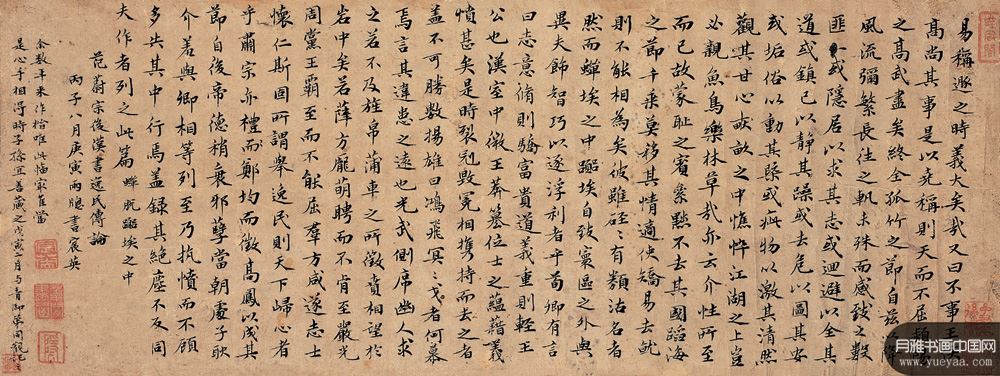 易稱遯之時義大矣哉又曰不事王
高尚其事是以堯稱則天而不屈潁
之高武盡矣終全孤竹之節自茲
風流彌繁長往之軌未殊而感致之數
匪一或隱居以求其志或迴避以全其
道或鎮己以靜其躁或去危以圖其安
或垢俗以動其槩或疵物以激其清然
觀其甘心畝之中憔悴江湖之上豈
必親魚鳥樂林草哉亦云介性所至
而已故蒙恥之賓屢黜不去其國蹈海
之節千乘莫移其情適使矯易去就
則不能相為矣彼雖硜〻有類沽名者
然而蟬埃之中蹈埃自致寰區之外與
異夫飾智巧以逐浮利者乎荀卿有言
曰志意脩則驕富貴道義重則輕王
公也漢室中微王莽篡位士之蘊藉義
憤甚矣是時裂冠毀冕相攜持而去之者
蓋不可勝數揚雄曰鴻飛冥〻弋者何慕
焉言其違患之遠也光武側席幽人求
之若不及旌帛蒲車之所徵賁相望於
岩中矣若薛方龐萌聘而不肯至嚴光
周黨王霸至而不能屈羣方咸遂志士
懷仁斯固所謂舉逸民則天下歸心者
乎肅宗亦禮而鄭均而徵高鳳以成其
節自後帝德稍衰邪孽當朝處子耿
介羞與卿相等列至乃抗憤而不顧
多失其中行焉蓋録其絕塵不反同
夫作者列之此篇 蟬蛻囂埃之中
范蔚宗後漢書逸民傳論
丙子八月庚寅雨牕書宸英
余數年來作楷唯此幅最當
是心手相得時子孫宜善藏之戊寅二月与青御弟同觀記之
月雅书画中国网
www.yueyaa.com